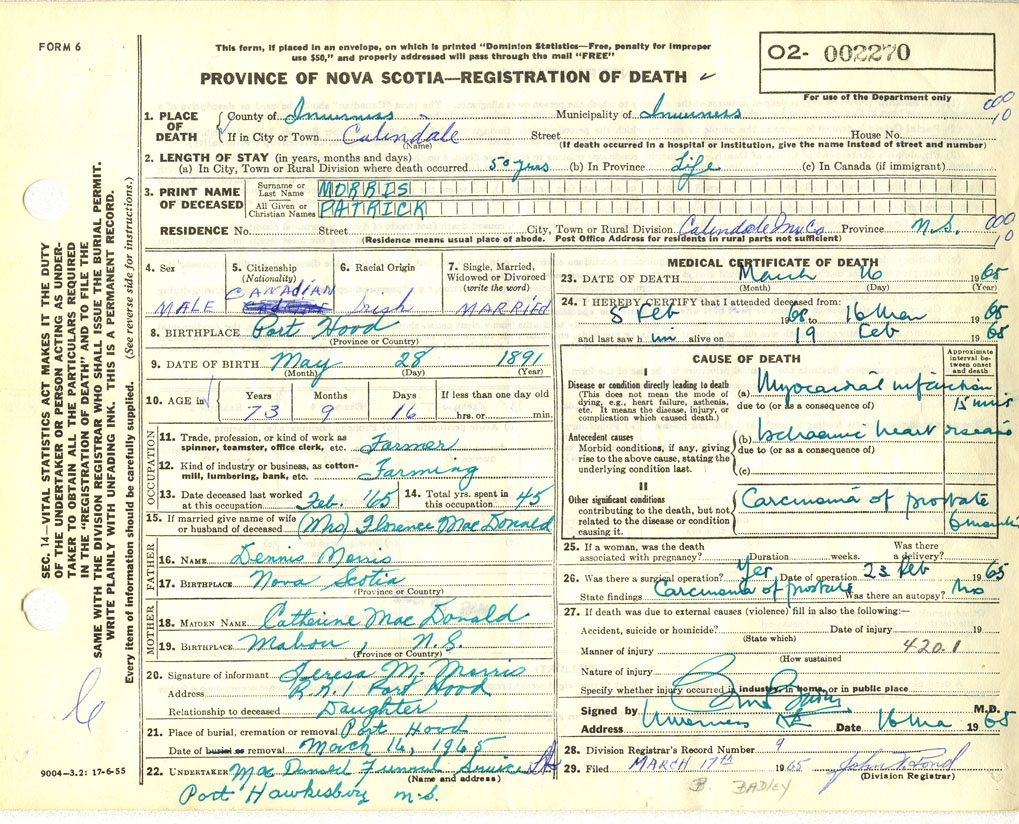 FORM 6
This form, if placed in an envelope, on which is printed "Dominion Statistics—Free, penalty for improper
use $50," and properly addressed will pass through the mail "FREE"
O2- 002270
PROVINCE OF NOVA SCOTIA—REGISTRATION OF DEATH ✓
For use of the Department only
1. PLACE OF DEATH { County of Inverness Municipality of Inverness 000 10
If in City or Town Calindale Street House No.
(Name) (If death occurred in a hospital or institution, give the name instead of street and number)
2. LENGTH OF STAY (in years, months and days)
(a) In City, Town or Rural Division where death occurred 50 yrs (b) In Province Life (c) In Canada (if immigrant)
3. PRINT NAME OF DECEASED Surname or Last Name MORRIS
All Given or Christian Names PATRICK
RESIDENCE No. Street City, Town or Rural Division Calindale Inv. Co Province N.S. 000 10
(Residence means usual place of abode. Post Office Address for residents in rural parts not sufficient)
4. Sex 5. Citizenship (Nationality) 6. Racial Origin 7. Single, Married, Widowed or Divorced (write the word)
MALE CANADIAN Irish MARRIED
8. BIRTHPLACE Port Hood
(Province or Country)
9. DATE OF BIRTH May 28 1891
(Month) (Day) (Year)
10. AGE in Years Months Days If less than one day old
73 9 16 hrs. or min.
OCCUPATION
11. Trade, profession, or kind of work as spinner, teamster, office clerk, etc. Farmer
12. Kind of industry or business, as cotton-mill, lumbering, bank, etc. Farming
13. Date deceased last worked at this occupation Feb. '65 14. Total yrs. spent in this occupation 45
15. If married give name of wife or husband of deceased (Mrs) Florence MacDonald
FATHER
16. NAME Dennis Morris
17. BIRTHPLACE Nova Scotia
(Province or Country)
MOTHER
18. MAIDEN NAME Catherine Mac Donald
19. BIRTHPLACE Mabou, N.S.
(Province or Country)
20. Signature of informant Teresa M. Morris
Address R.R.1 Port Hood
Relationship to deceased Daughter
21. Place of burial, cremation or removal Port Hood
Date of burial or removal March 16, 1965
22. UNDERTAKER Mac Donald Funeral Service
(Name and address)
Port Hawkesbury N.S.
MEDICAL CERTIFICATE OF DEATH
23. DATE OF DEATH March 16 1965
(Month) (Day) (Year)
24. I HEREBY CERTIFY that I attended deceased from:
5 Feb 1965 to 16 Mar 1965
and last saw him alive on 19 Feb 1965
CAUSE OF DEATH
Approximate interval between onset and death
I
Disease or condition directly leading to death
(This does not mean the mode of dying, e.g., heart failure, asthenia, etc. It means the disease, injury, or complication which caused death.)
(a) Myocardial infarction 15 mins
due to (or as a consequence of)
Antecedent causes
Morbid conditions, if any, giving rise to the above cause, stating the underlying condition last.
(b) Ischaemic heart disease
due to (or as a consequence of)
(c)
II
Other significant conditions
contributing to the death, but not related to the disease or condition causing it.
Carcinoma of prostate
6 months
25. If a woman, was the death associated with pregnancy? Duration weeks. Was there a delivery?
26. Was there a surgical operation? Yes Date of operation 23 Feb 1965
State findings Carcinoma of prostate Was there an autopsy? No
27. If death was due to external causes (violence) fill in also the following:—
Accident, suicide or homicide? Date of injury 19
(State which)
Manner of injury 420.1
(How sustained
Nature of injury
Specify whether injury occurred in industry, in home, or in public place
Signed by M.D.
Address Inverness Date 16 Mar 1965
28. Division Registrar's Record Number 9
29. Filed MARCH 17th 1965
(Division Registrar)
B. BADLEY
9004-3.2: 17-6-55
SEC. 14—VITAL STATISTICS ACT MAKES IT THE DUTY
OF THE UNDERTAKER OR PERSON ACTING AS UNDER-
TAKER TO OBTAIN ALL THE PARTICULARS REQUIRED
IN THE "REGISTRATION OF DEATH" AND TO FILE THE
SAME WITH THE DIVISION REGISTRAR WHO SHALL ISSUE THE BURIAL PERMIT.
WRITE PLAINLY WITH UNFADING INK. THIS IS A PERMANENT RECORD.
Every item of information should be carefully supplied. (See reverse side for instructions.)